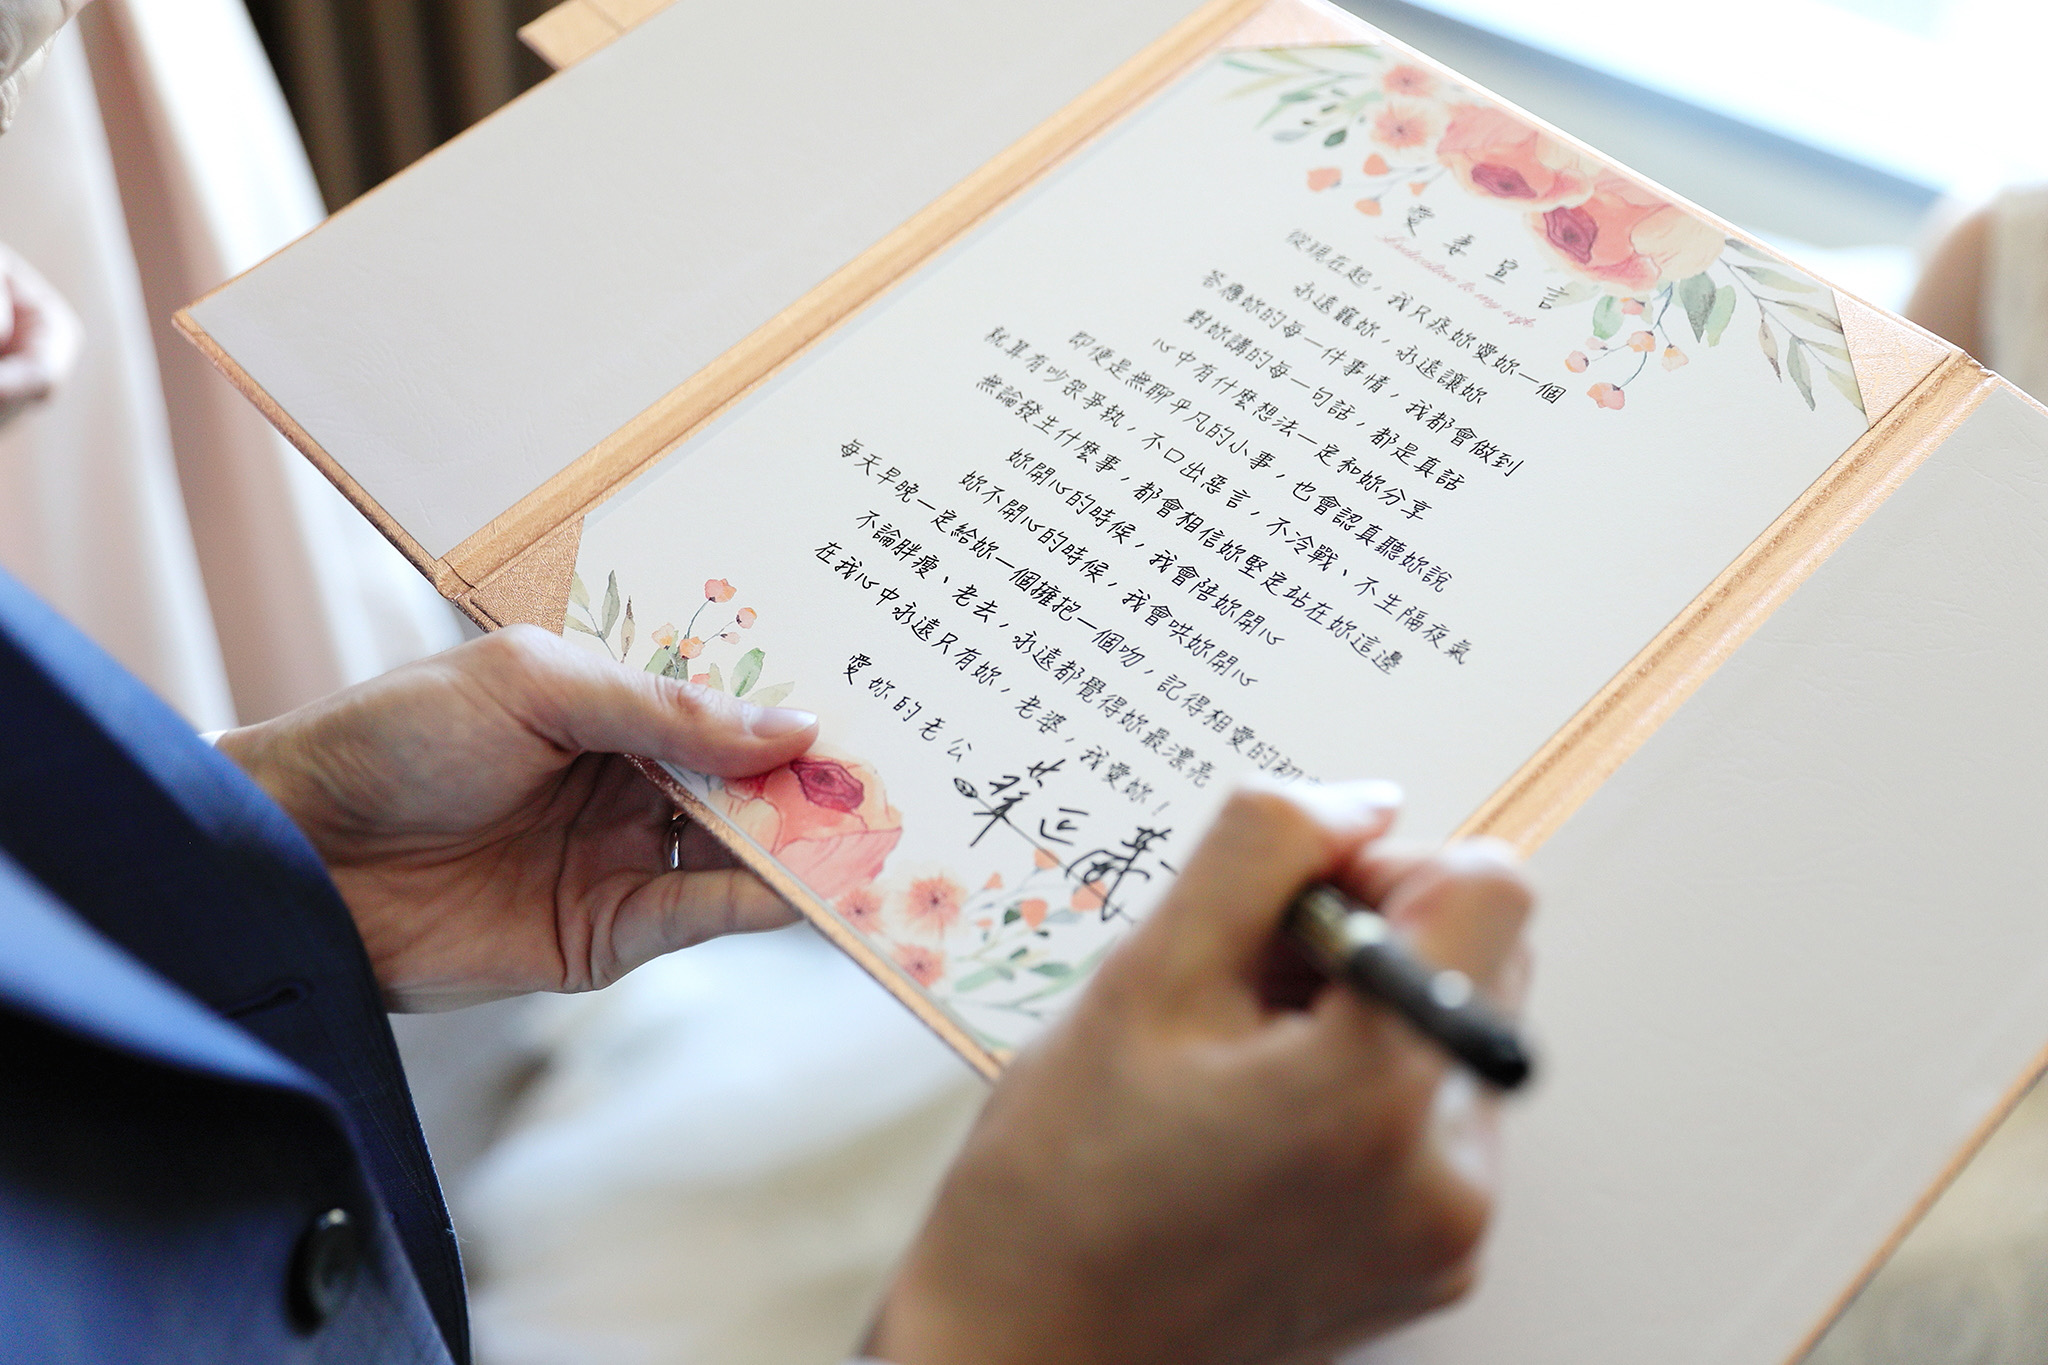 愛妻宣言
Declaration to my wife
從現在起，我只疼妳愛妳一個
永遠寵妳，永遠讓妳
答應妳的每一件事情，我都會做到
對妳講的每一句話，都是真話
心中有什麼想法一定和妳分享
即便是無聊平凡的小事，也會認真聽妳說
就算有吵架爭執，不口出惡言，不冷戰、不生隔夜氣
無論發生什麼事，都會相信妳堅定站在妳這邊
妳開心的時候，我會陪妳開心
妳不開心的時候，我會哄妳開心
每天早晚一定給妳一個擁抱一個吻，記得相愛的初
不論胖瘦、老去，永遠都覺得妳最漂亮
在我心中永遠只有妳，老婆，我愛妳！
愛妳的老公